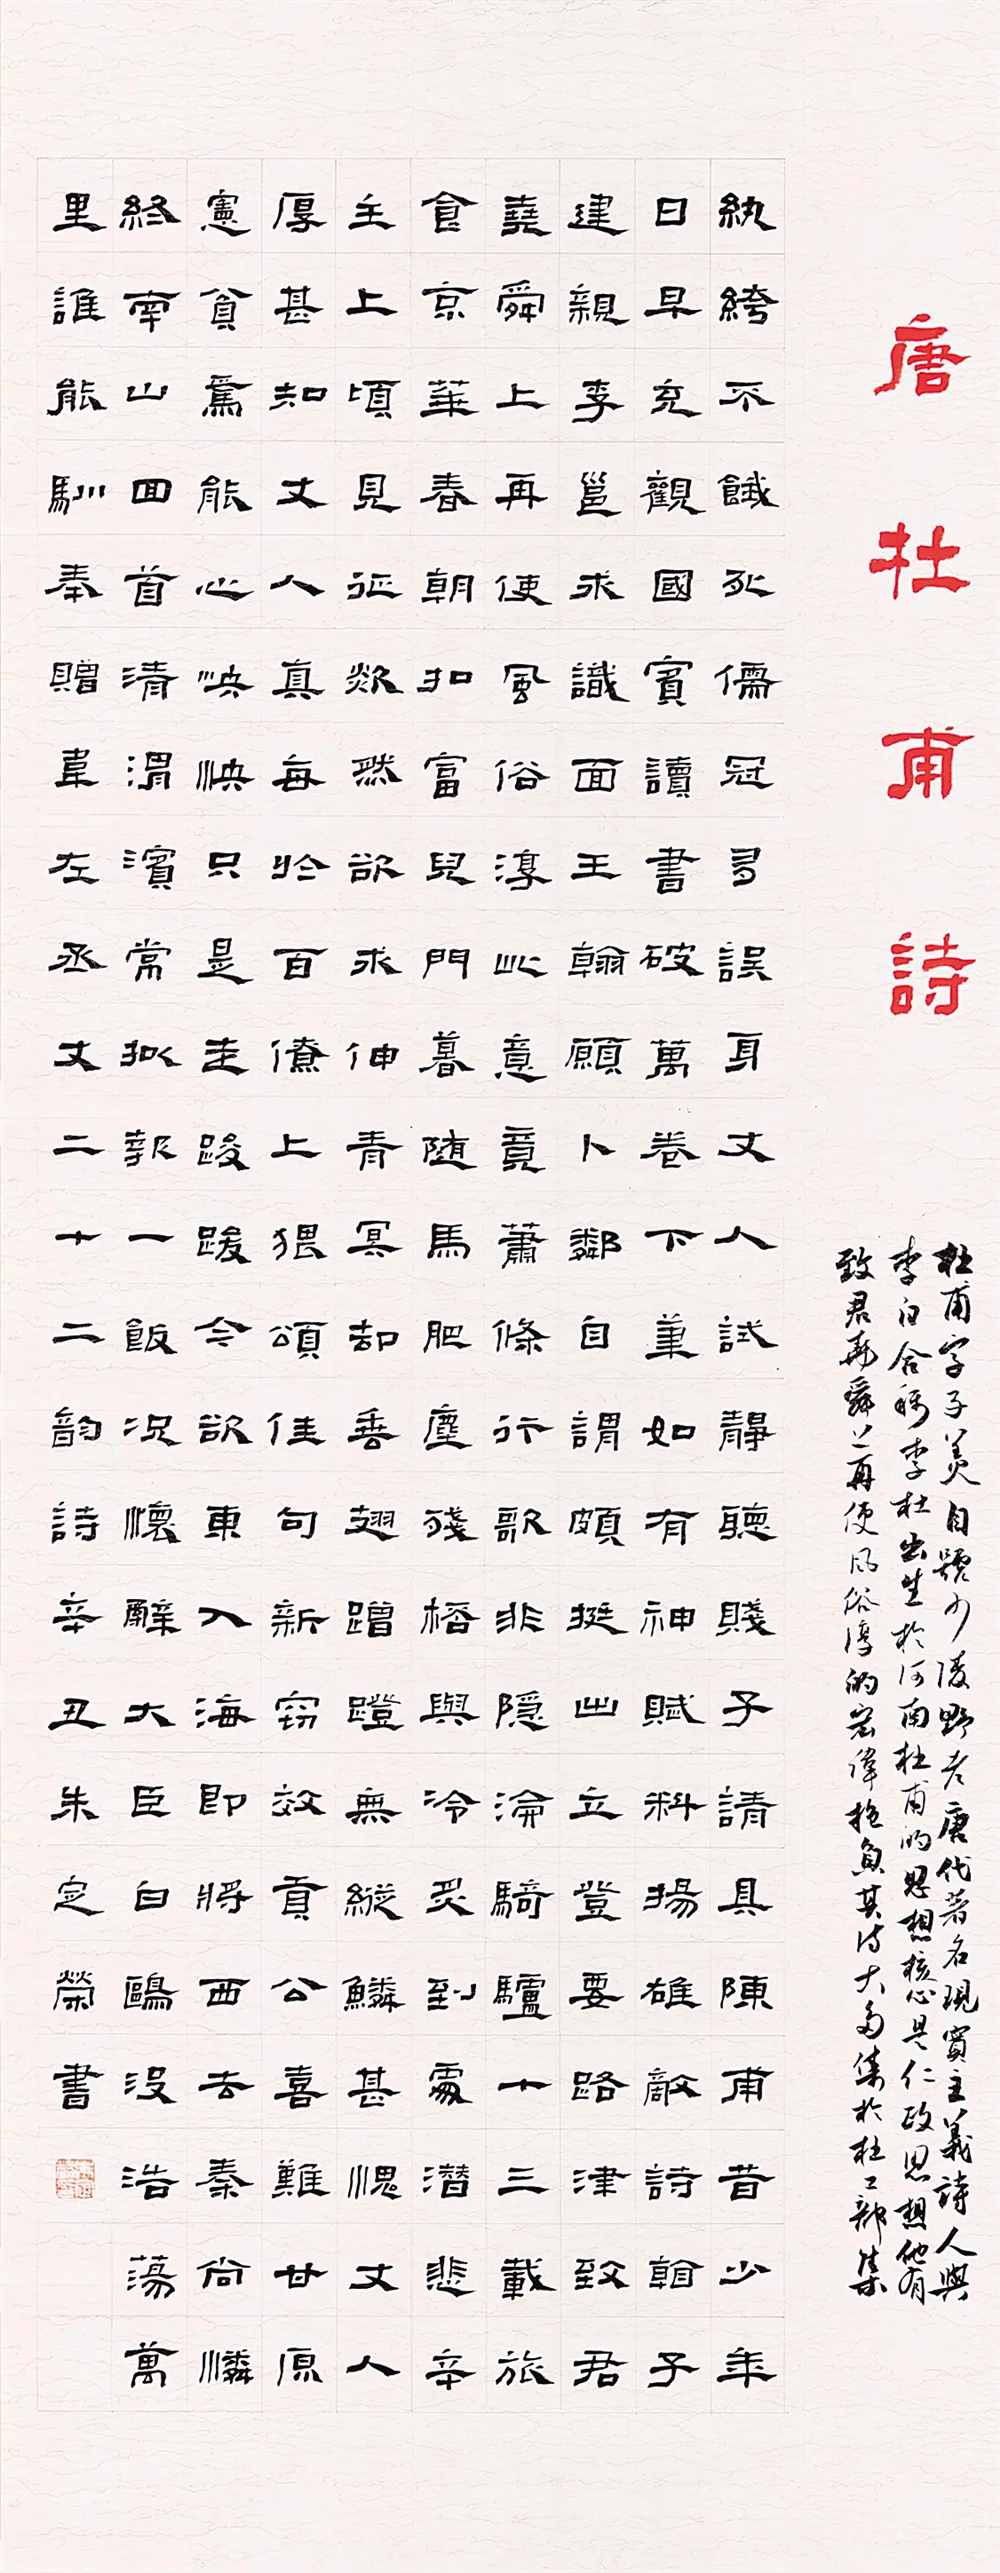 唐杜甫詩
杜甫字子美自號少陵野老唐代著名現實主義詩人與
李白合稱李杜出生於河南杜甫的思想核心是仁政思想他有
致君堯舜上再使風俗淳的宏偉抱負其詩大多集於杜工部集
紈絝不餓死儒冠多誤身丈人試靜聽賤子請具陳甫昔少年
日早充觀國賓讀書破萬卷下筆如有神賦料揚雄敵詩翰子
建親李邕求識面王翰願卜鄰自謂頗挺出立登要路津致君
堯舜上再使風俗淳此意竟蕭條行歌非隱淪騎驢十三載旅
食京華春朝扣富兒門暮随馬肥塵殘桮與冷炙到處潜悲辛
主上頃見征欻然欲求伸青冥却垂翅蹭蹬無縱鱗甚愧丈人
厚甚知丈人真每於百僚上猥頌佳句新窃效貢公喜難甘原
憲貧焉能心怏怏只是走踆踆今欲東入海即將西去秦尚憐
終南山回首清渭濱常擬報一飯况懷辭大臣白鷗沒浩蕩萬
里誰能馴奉贈韋左丞丈二十二韵詩辛丑朱定榮書